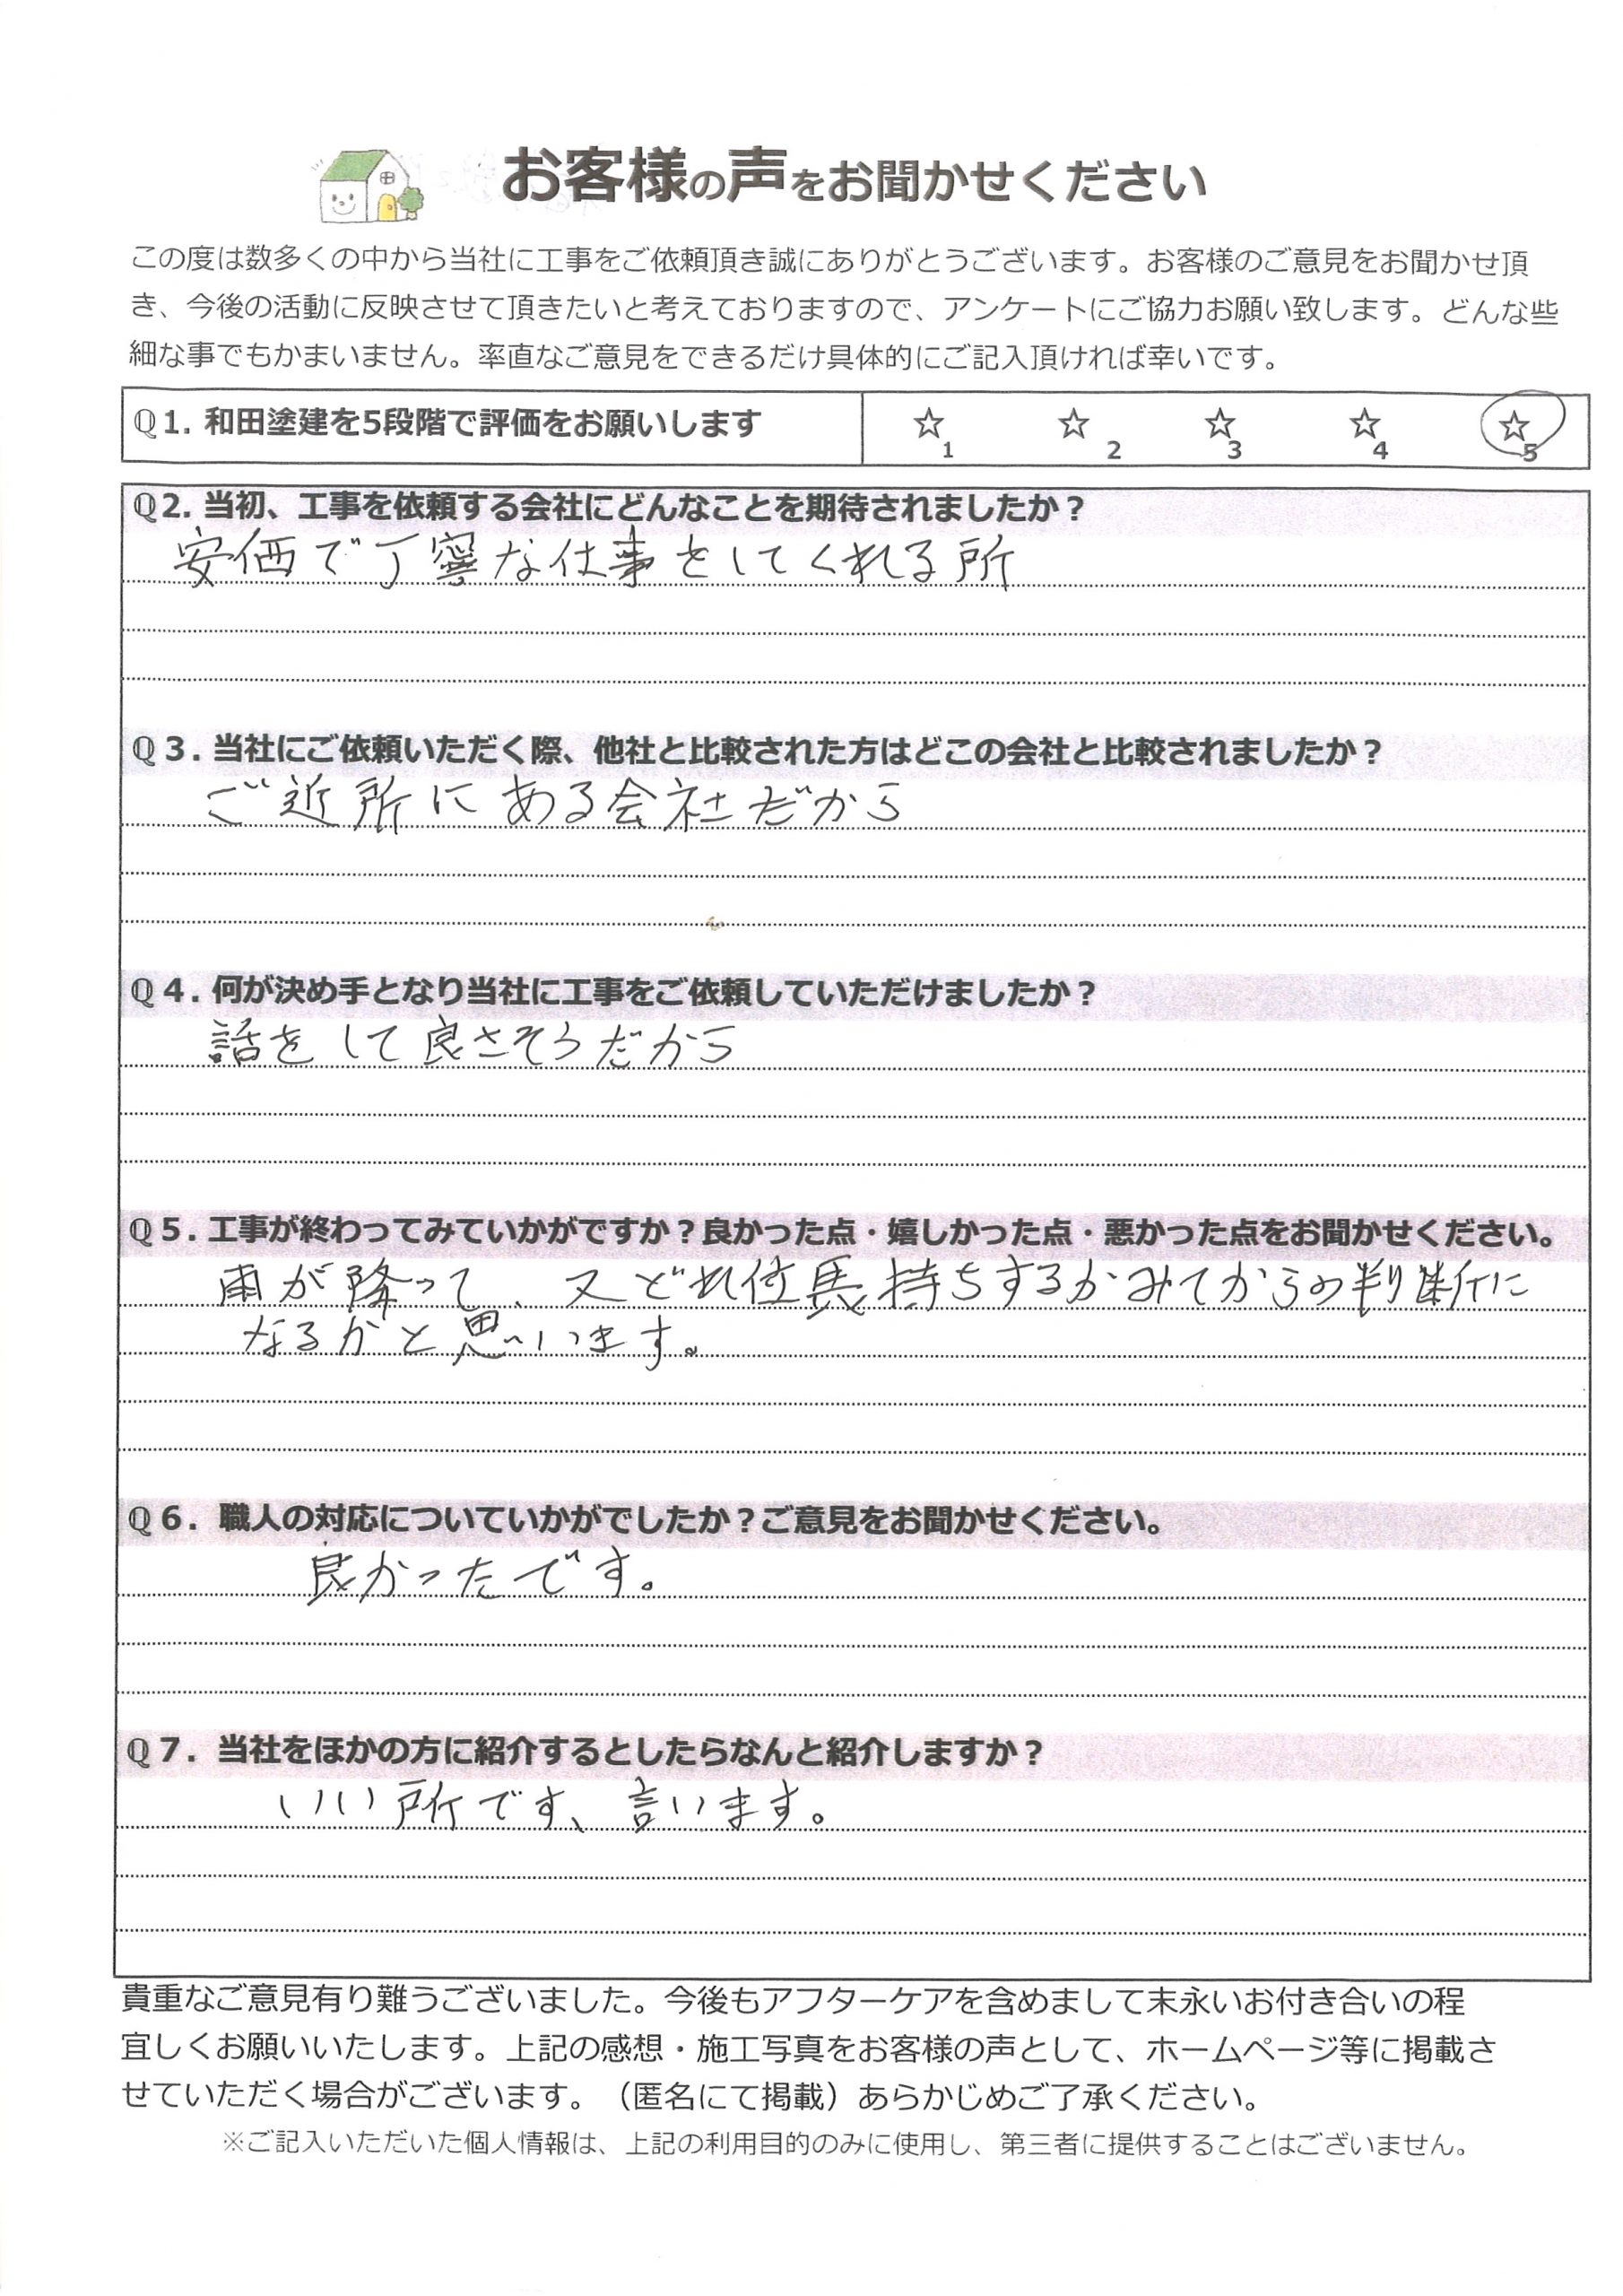 お客様の声をお聞かせください
この度は数多くの中から当社に工事をご依頼頂き誠にありがとうございます。お客様のご意見をお聞かせ頂
き、今後の活動に反映させて頂きたいと考えておりますので、アンケートにご協力お願い致します。どんな些
細な事でもかまいません。率直なご意見をできるだけ具体的にご記入頂ければ幸いです。
Q1. 和田塗建を5段階で評価をお願いします ☆1 ☆2 ☆3 ☆4 ☆5
Q2. 当初、工事を依頼する会社にどんなことを期待されましたか？
安価で丁寧な仕事をしてくれる所
Q３. 当社にご依頼いただく際、他社と比較された方はどこの会社と比較されましたか？
ご近所にある会社だから
Q４. 何が決め手となり当社に工事をご依頼していただけましたか？
話をして良さそうだから
Q５. 工事が終わってみていかがですか？良かった点・嬉しかった点・悪かった点をお聞かせください。
雨が降って、又どれ位長持ちするかみてからの判断に
なるかと思います。
Q６. 職人の対応についていかがでしたか？ご意見をお聞かせください。
良かったです。
Q７. 当社をほかの方に紹介するとしたらなんと紹介しますか？
いい所です、言います。
貴重なご意見有り難うございました。今後もアフターケアを含めまして末永いお付き合いの程
宜しくお願いいたします。上記の感想・施工写真をお客様の声として、ホームページ等に掲載さ
せていただく場合がございます。（匿名にて掲載）あらかじめご了承ください。
※ご記入いただいた個人情報は、上記の利用目的のみに使用し、第三者に提供することはございません。